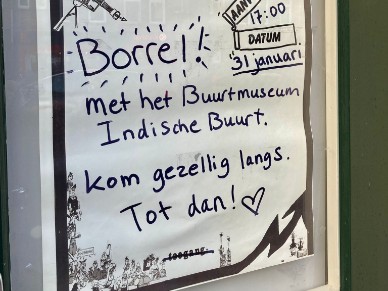 AAN
17:00
Borrel!
DATUM
31 januari
met het Buurtmuseum
Indische Buurt.
Kom gezellig langs.
Tot dan!
toegang